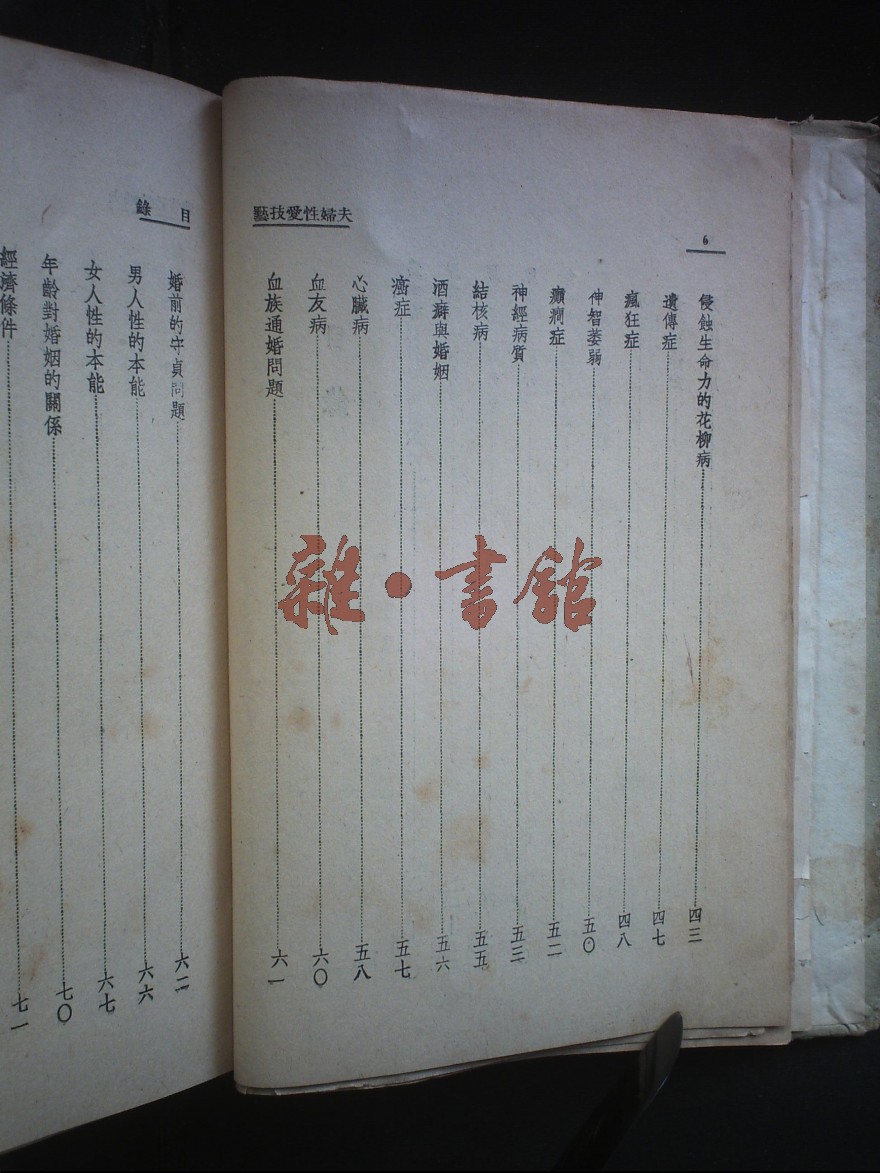 夫婦性愛技藝
6
侵蝕生命力的花柳病 四三
遺傳症 四七
瘋狂症 四八
神智萎弱 五〇
癲癇症 五二
神經病質 五三
結核病 五五
酒癖與婚姻 五六
癌症 五七
心臟病 五八
血友病 六〇
血族通婚問題 六一
目錄
婚前的守貞問題 六二
男人性的本能 六六
女人性的本能 六七
年齡對婚姻的關係 七〇
經濟條件 七一
雜·書館